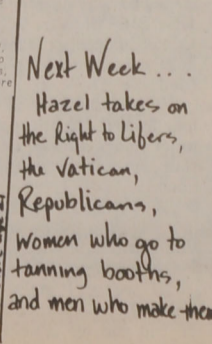 Next Week...
Hazel takes on
the Right to Lifers,
the Vatican,
Republicans,
women who go to
tanning booths,
and men who make them